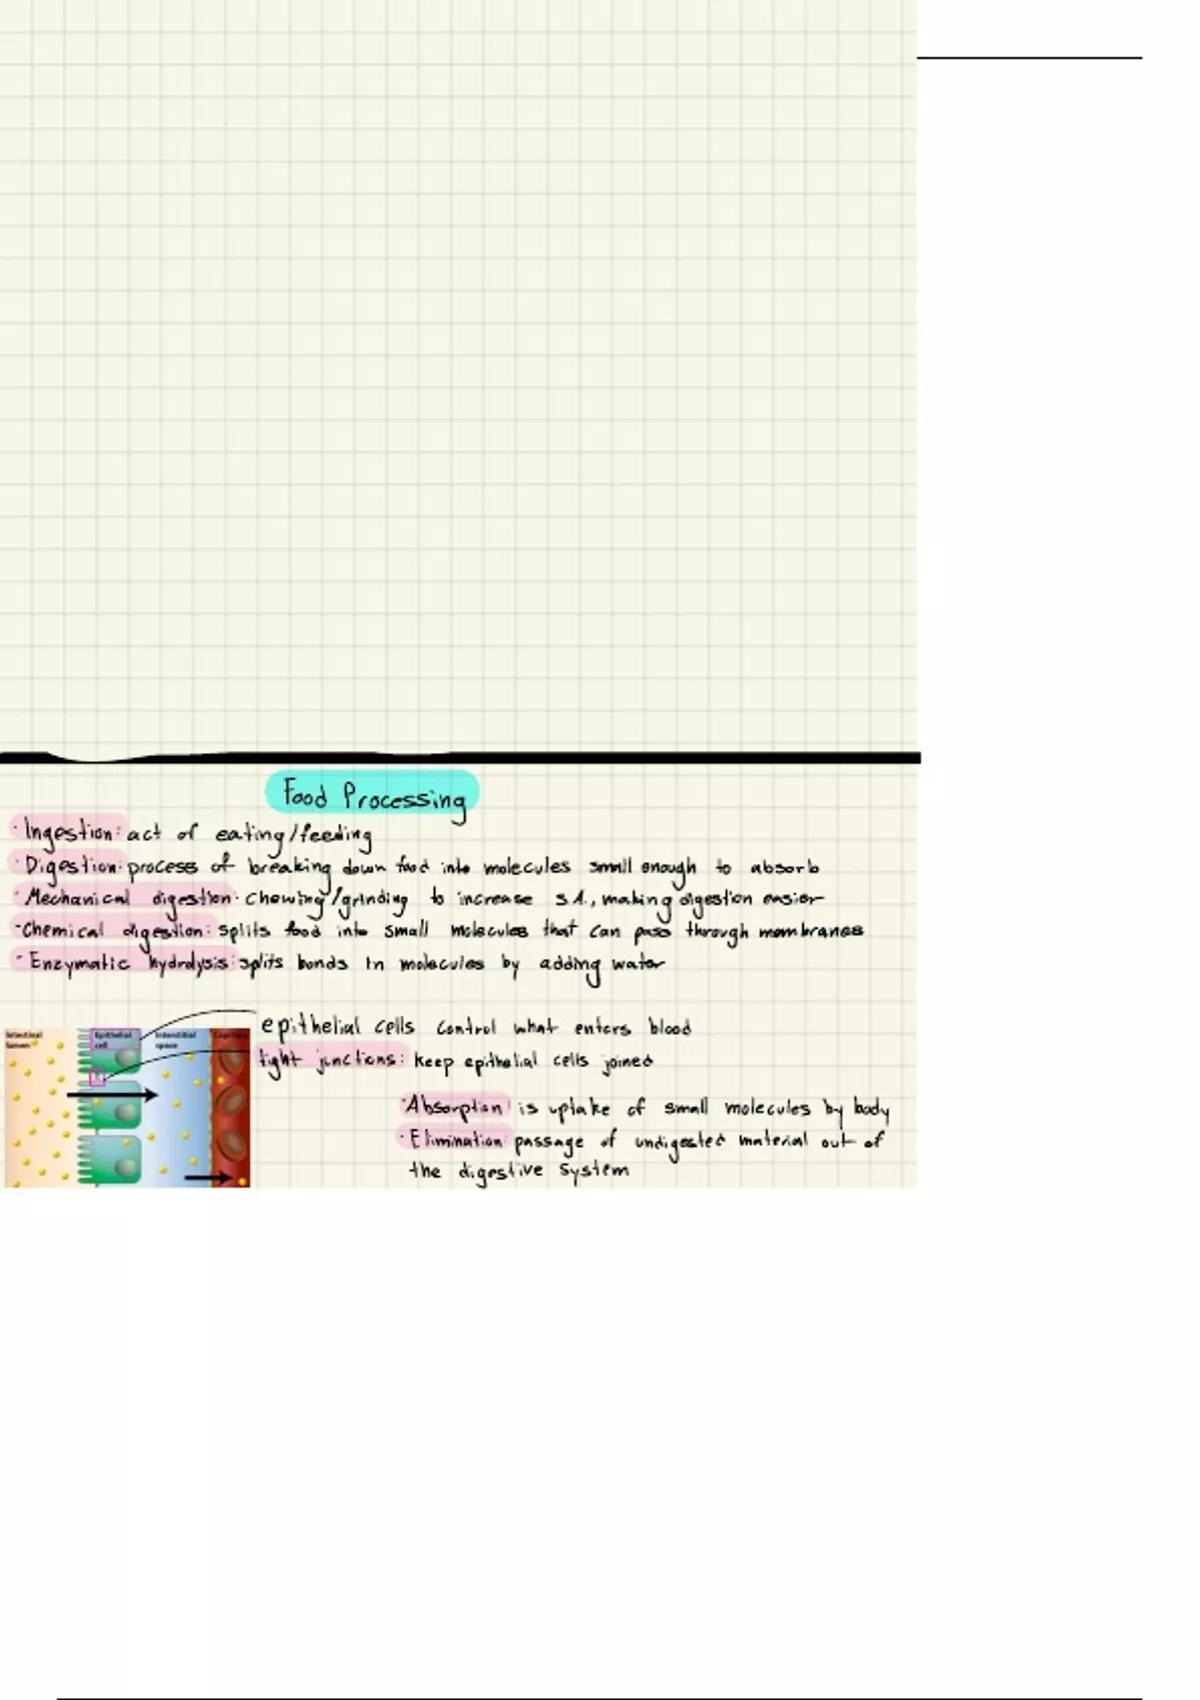 Food Processing
· Ingestion: act of eating/feeding
· Digestion: process of breaking down food into molecules small enough to absorb
· Mechanical digestion: chewing/grinding to increase SA, making digestion easier
· Chemical digestion: splits food into small molecules that can pass through membranes
· Enzymatic hydrolysis: splits bonds in molecules by adding water
epithelial cells control what enters blood
Intestinal lumen
Epithelial cell
Interstitial space
Capillary
tight junctions: keep epithelial cells joined
· Absorption is uptake of small molecules by body
· Elimination: passage of undigested material out of
the digestive system